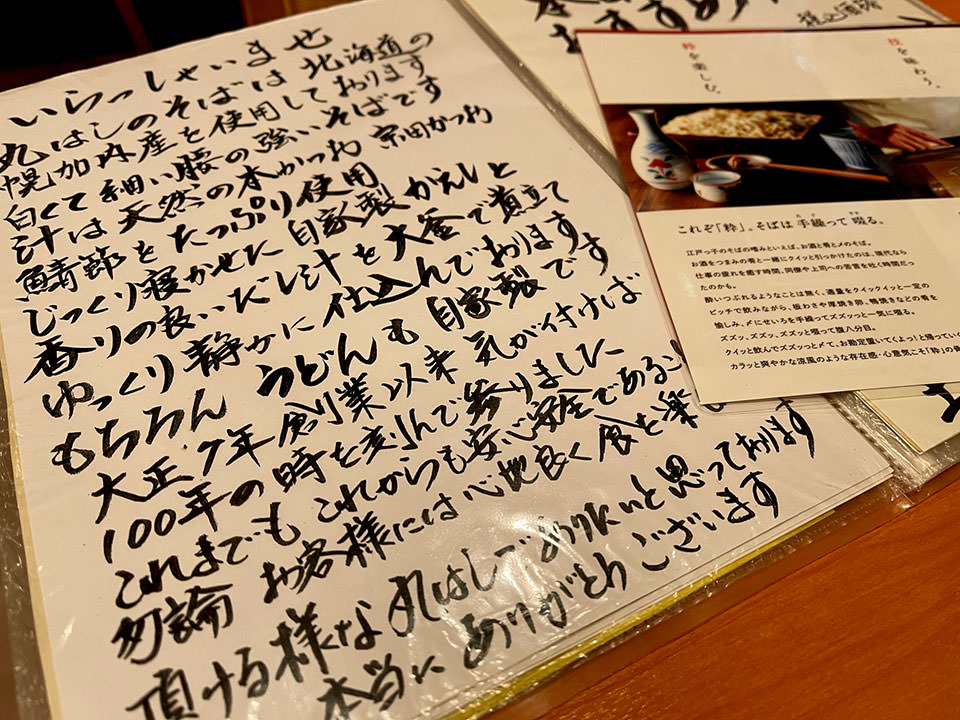 いらっしゃいませ
丸はしのそばは北海道の
幌加内産を使用しております
白くて細い腰の強いそばです
汁は天然の本かつお 宗田かつお
鯖節をたっぷり使用
じっくり寝かせた自家製かえしと
香りの良いだし汁を大釜で煮立て
ゆっくり静かに仕込んでおります
もちろん うどんも自家製です
大正7年創業以来気が付けば
100年の時を刻んで参りました
これまでも これからも安心安全であるこ
勿論 お客様には心地良く食を楽し
頂ける様な丸はしでありたいと思っております
本当にありがとうございます
粋を楽しむ。
技を味わう。
これぞ「粋」。そばは手繰って啜る。
江戸っ子のそばの嗜みといえば、お酒と肴と〆のそば。
お酒をつまみの肴と一緒にクイッと引っかけたのは、現代なら
仕事の疲れを癒す時間、同僚や上司への苦言を吐く時間だっ
たのかも。
酔いつぶれるようなことは無く、適量をクイックイッと一定の
ピッチで飲みながら、板わさや厚焼き卵、鴨焼きなどの肴を
愉しみ、〆にせいろを手繰ってズズッっと一気に啜る。
ズズッ、ズズッ、ズズッと啜って腹八分目。
クイッと飲んでズズッっと〆て、お勘定置いてくよっ！と帰ってい
カラッと爽やかな涼風のような存在感・心意気こそ「粋」の